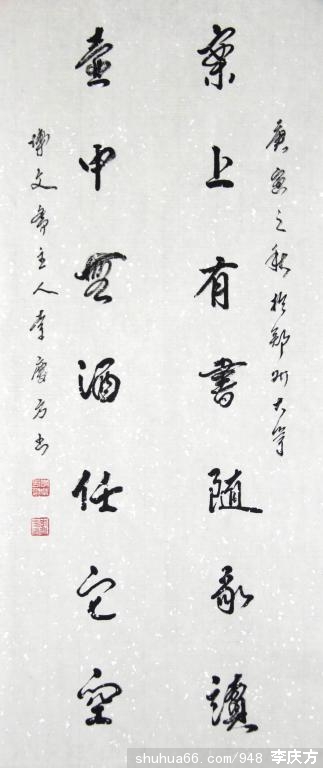 庚寅之秋於鄭州大学
案上有書随我讀
壺中無酒任它空
博文斋主人李慶方书
shuhua66.com/948 李庆方